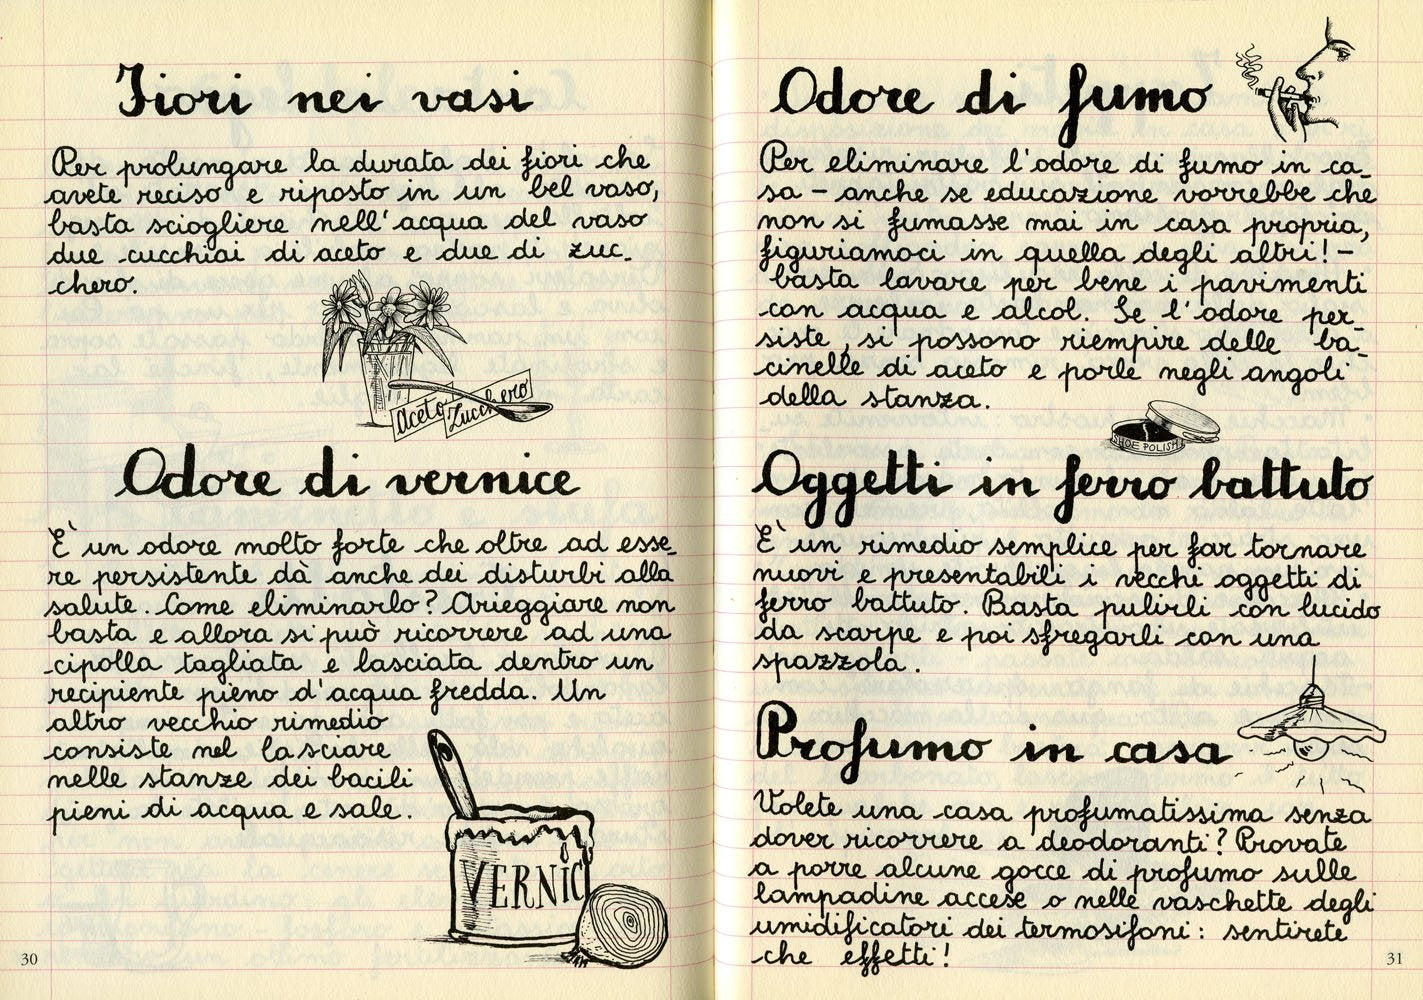 Fiori nei vasi
Per prolungare la durata dei fiori che
avete reciso e riposto in un bel vaso,
basta sciogliere nell'acqua del vaso
due cucchiai di aceto e due di zuc-
chero.
Aceto
Zucchero
Odore di vernice
È un odore molto forte che oltre ad esse-
re persistente dà anche dei disturbi alla
salute. Come eliminarlo? Arieggiare non
basta e allora si può ricorrere ad una
cipolla tagliata e lasciata dentro un
recipiente pieno d'acqua fredda. Un
altro vecchio rimedio
consiste nel lasciare
nelle stanze dei bacili
pieni di acqua e sale.
VERNIC
30
Odore di fumo
Per eliminare l'odore di fumo in ca-
sa - anche se educazione vorrebbe che
non si fumasse mai in casa propria,
figuriamoci in quella degli altri! -
basta lavare per bene i pavimenti
con acqua e alcol. Se l'odore per-
siste, si possono riempire delle ba-
cinelle di aceto e porle negli angoli
della stanza.
SHOE POLISH
Oggetti in ferro battuto
È un rimedio semplice per far tornare
nuovi e presentabili i vecchi oggetti di
ferro battuto. Basta pulirli con lucido
da scarpe e poi sfregarli con una
spazzola.
Profumo in casa
Volete una casa profumatissima senza
dover ricorrere a deodoranti? Provate
a porre alcune gocce di profumo sulle
lampadine accese o nelle vaschette degli
umidificatori dei termosifoni: sentirete
che effetti!
31